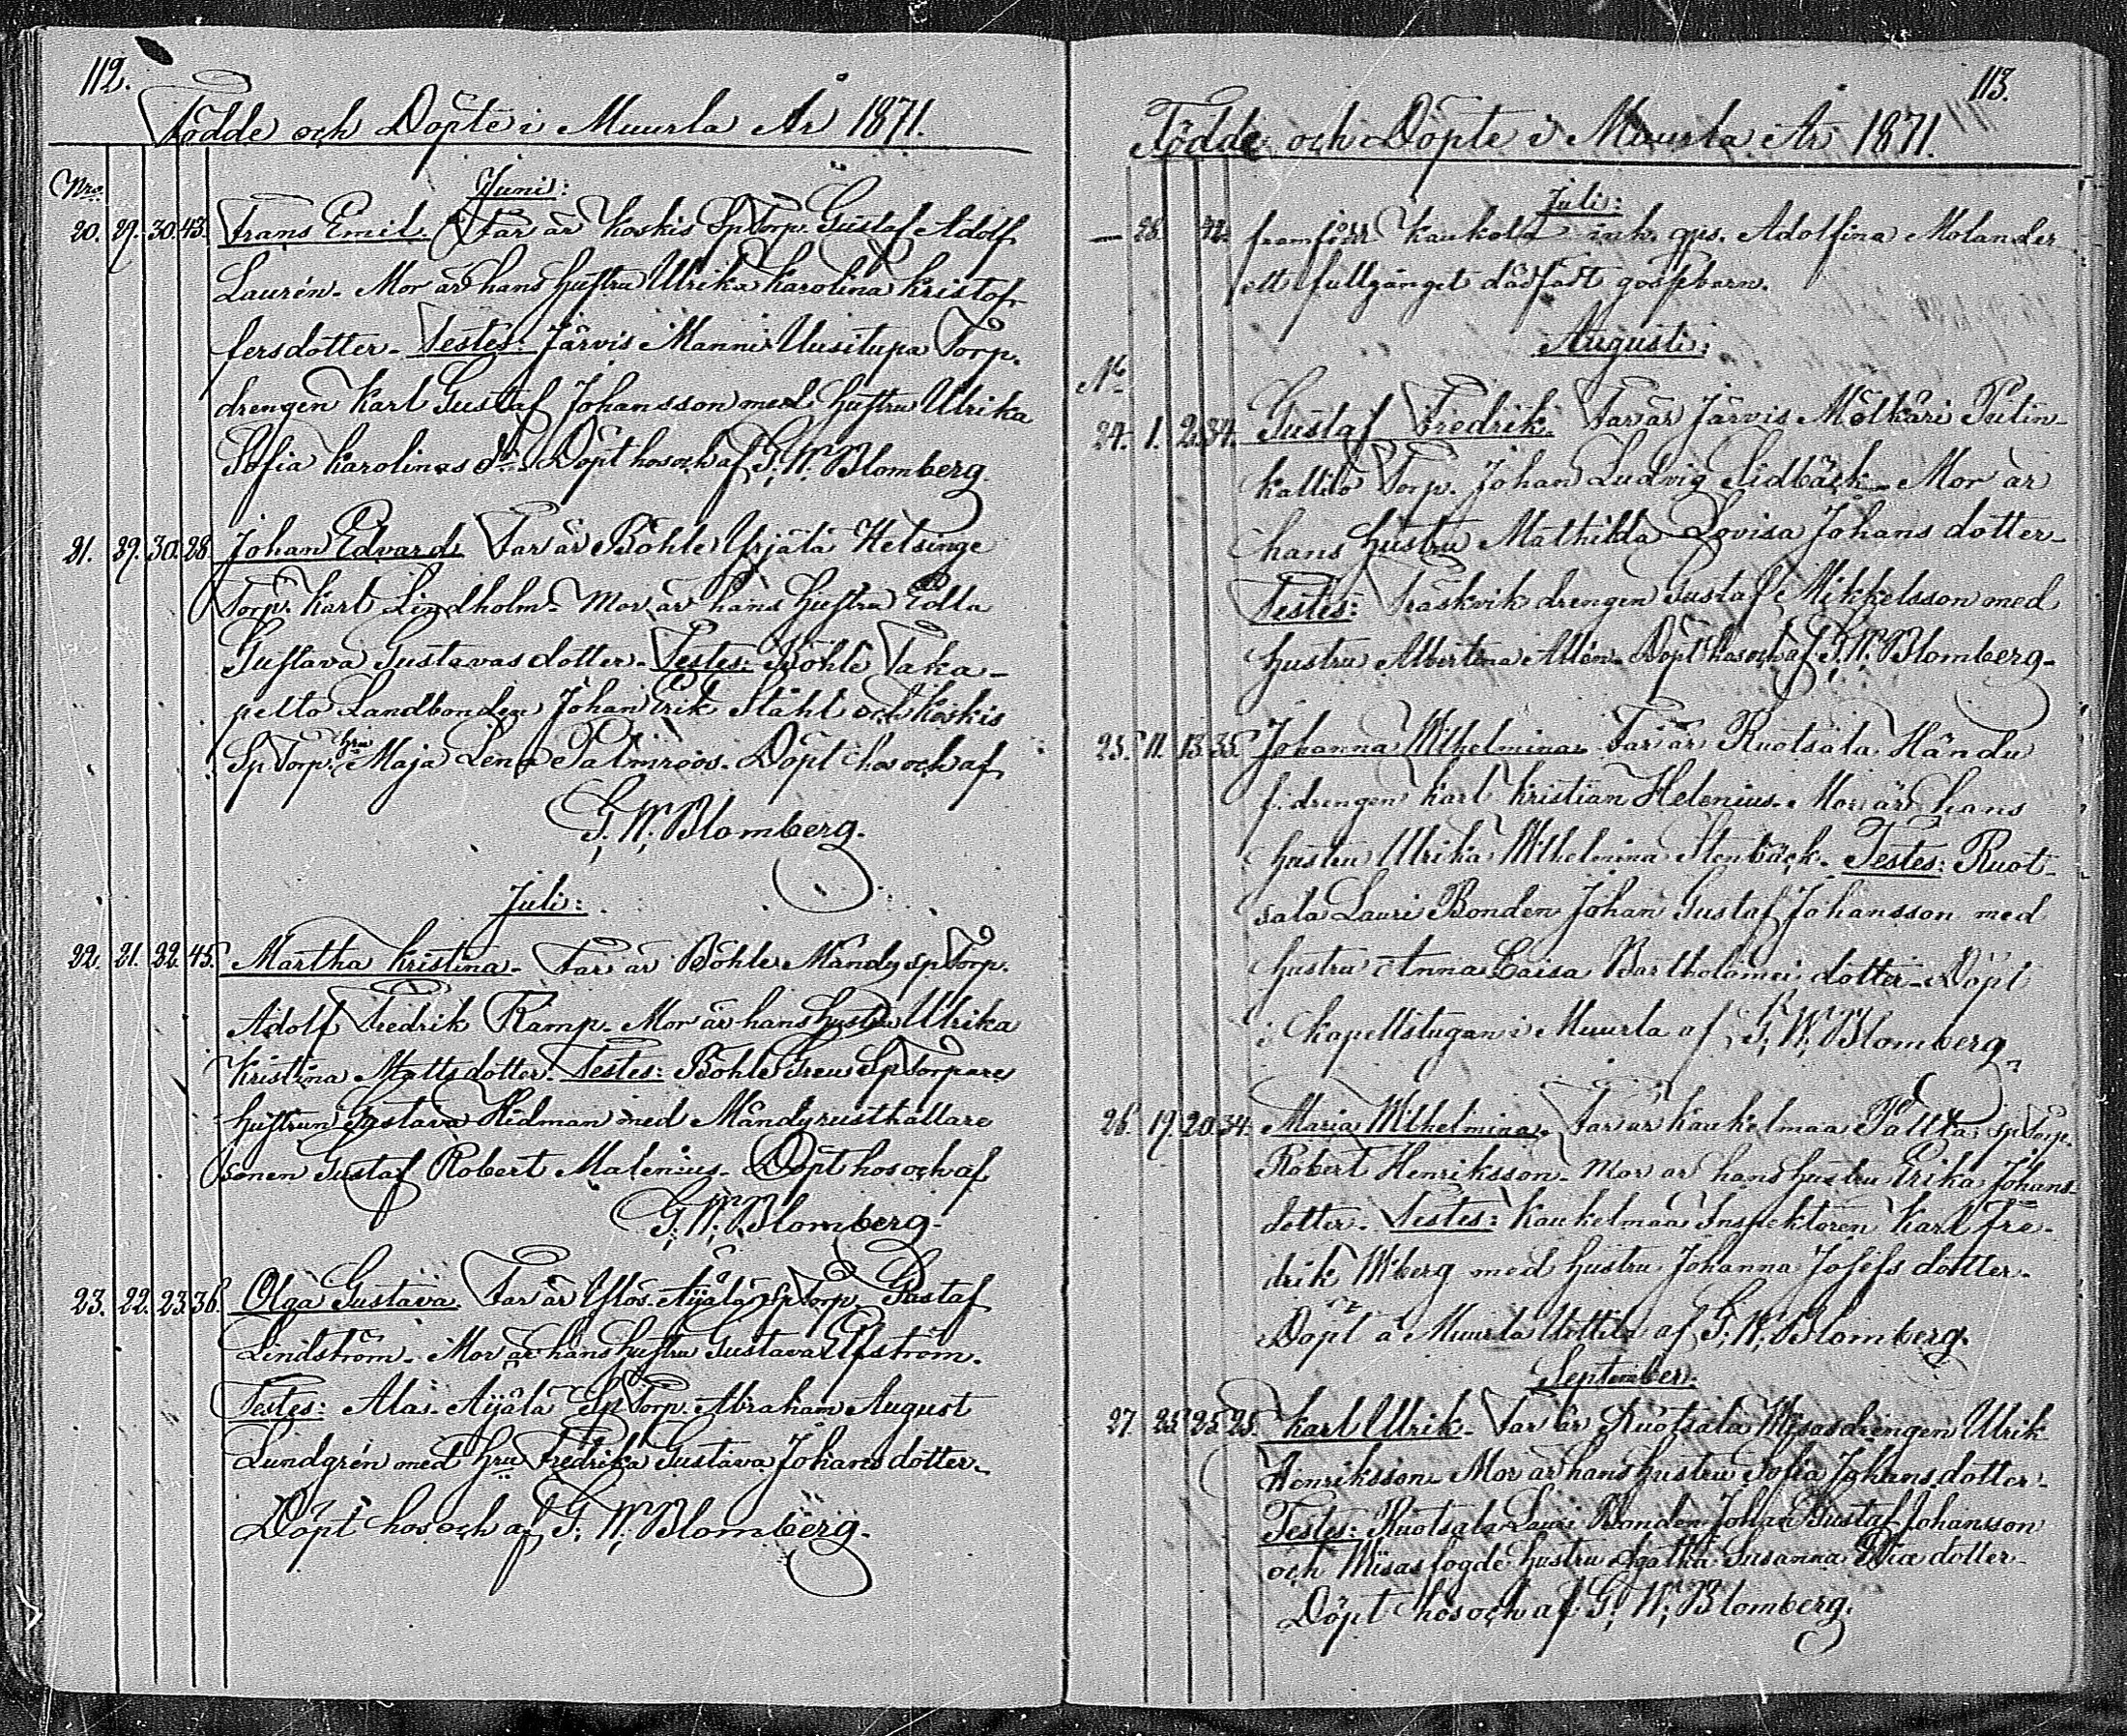 112.
Födde och Döpte i Muurla År 1871.
Nro.
Juni:
20. 29. 30. 43. Frans Emil. Far är Koskis SpTorp. Gustaf Adolf
Laurén. Mor är hans hustru Ulrika Karolina Kristof-
fersdotter. Testes: Järvis Manni Uusitupa Torp.
drengen Karl Gustaf Johansson med hustru Ulrika
Sofia Karolinas dr. Döpt hos och af G. W. Blomberg.
21. 29. 30. 28. Johan Edvard. Far är Böhle Yrjälä Helsinge
Torp. Karl Lindholm. Mor är hans hustru Edla
Gustava Gustavasdotter. Testes: Böhle Taka-
pelto Landbonden Johan Erik Ståhl och Koskis
SpTorp. hru Maja Lena Palmroos. Döpt hos och af
G. W. Blomberg.
Juli:
22. 21. 22. 45. Martha Kristina. Far är Böhle Mändy spTorp.
Adolf Fredrik Ramp. Mor är hans hustru Ulrika
Kristina Mattsdotter. Testes: Böhle SpTorpare
hustrun Gustava Hidman med Mändy rusthållare
sonen Gustaf Robert Malenius. Döpt hos och af
G. W. Blomberg.
23. 22. 23. 36. Olga Gustava. Far är Ylös. Äijälä SpTorp. Gustaf
Lindström. Mor är hans hustru Gustava Elfström.
Testes: Ala. Äijälä SpTorp. Abraham August
Lundgrén med hru Fredrika Gustava Johansdotter.
Döpt hos och af G. W. Blomberg.
113.
Födde och Döpte i Muurla År 1871.
Juli:
— 28. 42. framfödt Kaukola inh. qvs. Adolfina Molander
ett fullgånget dödfödt gossebarn.
Augusti:
No
24. 1. 2. 34. Gustaf Fredrik. Far är Järvis Mölkäri Putin-
kallio Torp. Johan Ludvig Lidbäck. Mor är
hans hustru Mathilda Lovisa Johansdotter.
Testes: Träskvik drengen Gustaf Mikkelsson med
hustru Albertina Allén. Döpt hos och af G. W. Blomberg.
25. 11. 13. 35. Johanna Wilhelmina. Far är Ruotsala Händu
f. drengen Karl Kristian Helenius. Mor är hans
hustru Ulrika Wilhelmina Stenbäck. Testes: Ruot-
sala Lauri Bonden Johan Gustaf Johansson med
hustru Anna Caisa Bartholomei dotter. Döpt
i Kapellstugan i Muurla af G. W. Blomberg.
26. 19. 20. 34. Maria Wilhelmina. Far är Kaukelmaa Paltta spTorp.
Robert Henriksson. Mor är hans hustru Erika Johans-
dotter. Testes: Kaukelmaa Inspektoren Karl Fre-
drik Wiberg med hustru Johanna Josefsdotter.
Döpt å Muurla Uottila af G. W. Blomberg.
September.
27. 25. 25. 25. Karl Ulrik. Far är Ruotsala Wisas drengen Ulrik
Henriksson. Mor är hans hustru Sofia Johansdotter.
Testes: Ruotsala Lauri Bonden Johan Gustaf Johansson
och Wisas fogde hustru Agatha Susanna dotter.
Döpt hos och af G. W. Blomberg.